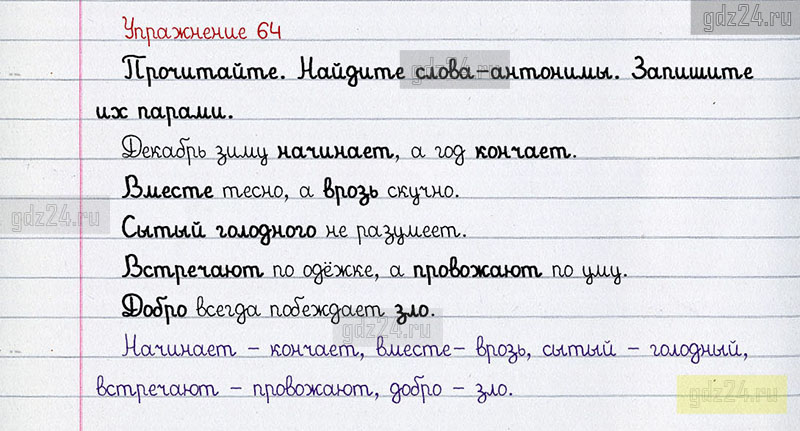 gdz24.ru
Упражнение 64
Прочитайте. Найдите слова-антонимы. Запишите
gdz24.ru
их парами.
Декабрь зиму начинает, а год кончает.
Вместе тесно, а врозь скучно.
gdz24.ru
Сытый голодного не разумеет.
Встречают по одёжке, а провожают по уму.
Добро всегда побеждает зло.
gdz24.ru
Начинает - кончает, вместе- врозь, сытый - голодный,
встречают - провожают, добро - зло.
gdz24.ru